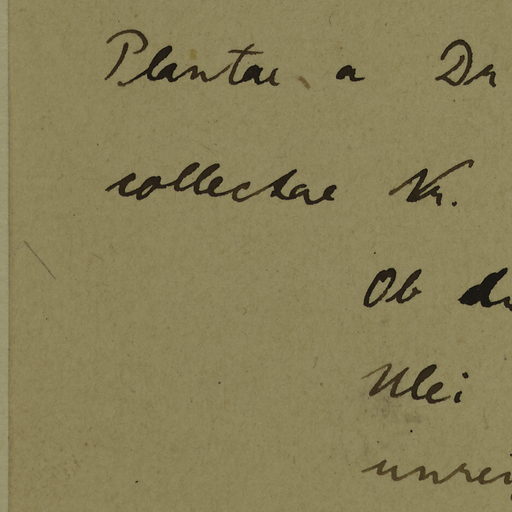 Plantae a Dr
collectae Nr.
Ob di
Ulei
unrei